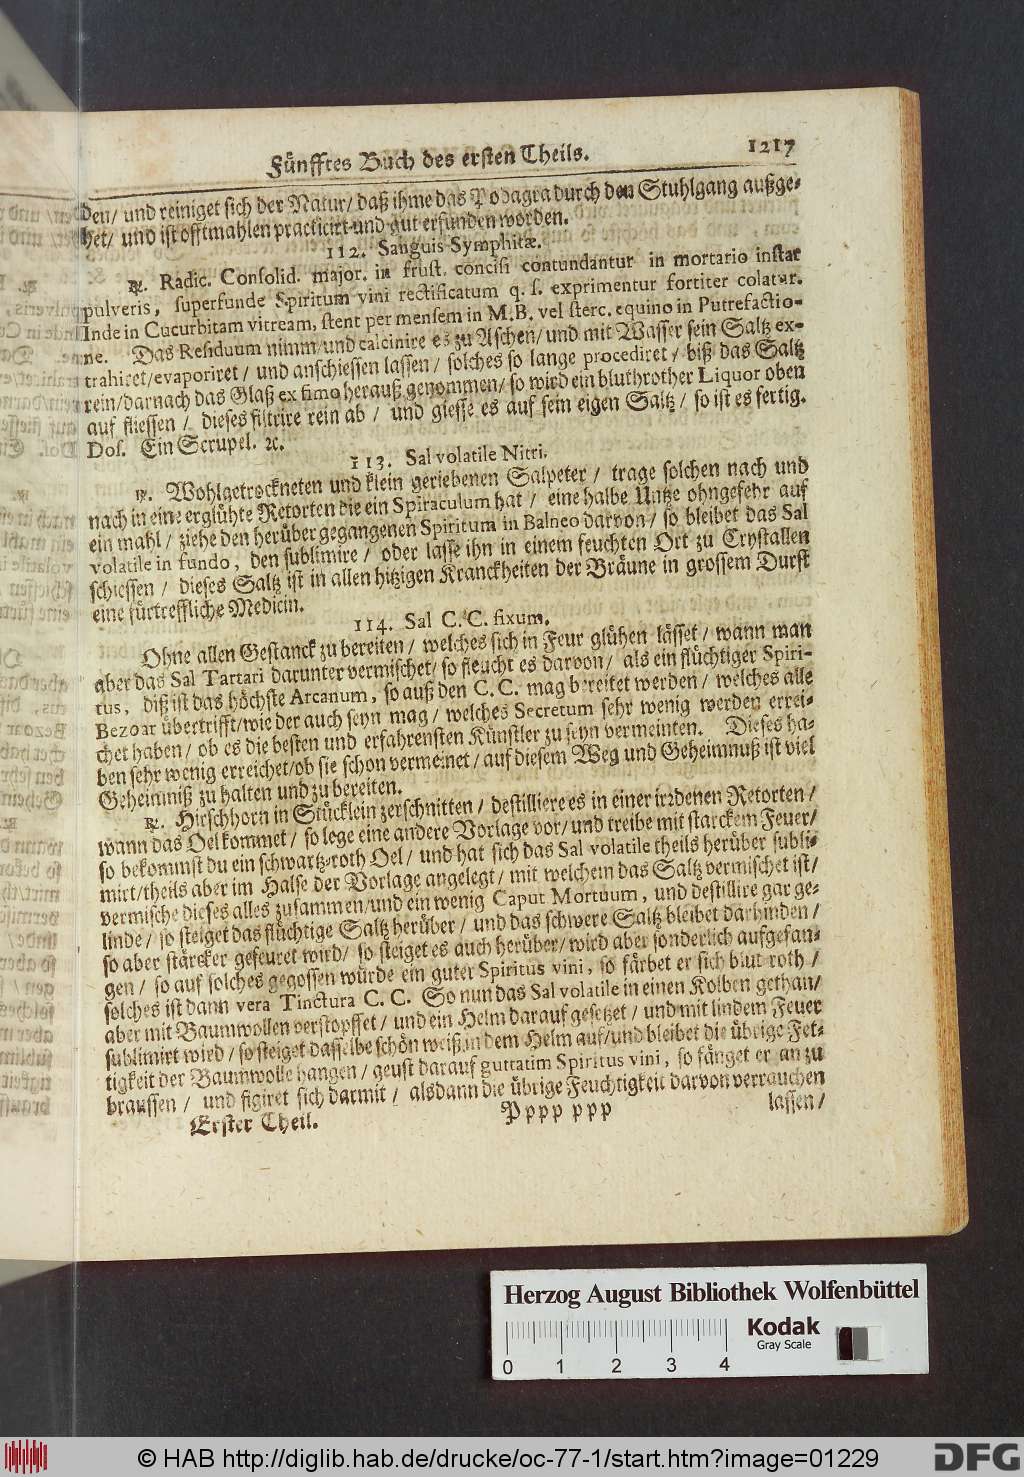 Fünfftes Buch des ersten Theils. 1217
den/ und reiniget sich der Natur/ daß ihme das Podagra durch den Stuhlgang außge-
het/ und ist offtmahlen practicirt und gut erfunden worden.
112. Sanguis Symphitæ.
℞. Radic. Consolid. major. in frust. concisi contundantur in mortario instar
pulveris, superfunde Spiritum vini rectificatum q. s. exprimentur fortiter colatur.
Inde in Cucurbitam vitream, stent per mensem in M.B. vel sterc. equino in Putrefactio-
ne. Das Residuum nimm/ und calcinire es zu Aschen/ und mit Wasser sein Saltz ex-
trahiret/ evaporiret / und anschiessen lassen / solches so lange procediret / biß das Saltz
rein/ darnach das Glaß ex fimo herauß genommen/ so wird ein bluthrother Liquor oben
auf fliessen / dieses filtrire rein ab / und giesse es auf sein eigen Saltz / so ist es fertig.
Dos. Ein Scrupel. ꝛc.
113. Sal volatile Nitri.
℞. Wohlgetrockneten und klein geriebenen Salpeter / trage solchen nach und
nach in eine erglühte Retorten die ein Spiraculum hat / eine halbe Untze ohngefehr auf
ein mahl / ziehe den herüber gegangenen Spiritum in Balneo darvon / so bleibet das Sal
volatile in fundo, den sublimire / oder lasse ihn in einem feuchten Ort zu Crystallen
schiessen / dieses Saltz ist in allen hitzigen Kranckheiten der Bräune in grossem Durst
eine fürtreffliche Medicin.
114. Sal C. C. fixum.
Ohne allen Gestanck zu bereiten / welches sich in Feur glühen lässet / wann man
aber das Sal Tartari darunter vermischet/ so fleucht es darvon / als ein flüchtiger Spiri-
tus, diß ist das höchste Arcanum, so auß den C. C. mag bereitet werden / welches alle
Bezoar übertrifft/ wie der auch seyn mag / welches Secretum sehr wenig werden errei-
chet haben / ob es die besten und erfahrensten Künstler zu seyn vermeinten. Dieses ha-
ben sehr wenig erreichet/ ob sie schon vermeinet / auf diesem Weg und Geheimnuß ist viel
Geheimniß zu halten und zu bereiten.
℞. Hirschhorn in Stücklein zerschnitten / destilliere es in einer irrdenen Retorten /
wann das Oel kommet / so lege eine andere Vorlage vor/ und treibe mit starckem Feuer/
so bekommst du ein schwartz-roth Oel / und hat sich das Sal volatile theils herüber subli-
mirt/ theils aber im Halse der Vorlage angelegt / mit welchem das Saltz vermischet ist/
vermische dieses alles zusammen/ und ein wenig Caput Mortuum, und destillire gar ge-
linde / so steiget das flüchtige Saltz herüber / und das schwere Saltz bleibet darhinden /
so aber stärcker gefeuret wird/ so steiget es auch herüber/ wird aber sonderlich aufgefan-
gen / so auf solches gegossen würde ein guter Spiritus vini, so färbet er sich blut roth /
solches ist dann vera Tinctura C. C. So nun das Sal volatile in einen Kolben gethan/
aber mit Baumwollen verstopffet / und ein Helm darauf gesetzet / und mit lindem Feuer
sublimirt wird / so steiget dasselbe schön weiß in dem Helm auf/ und bleibet die übrige Fet-
tigkeit der Baumwolle hangen / geust darauf guttatim Spiritus vini, so fänget er an zu
braussen / und figiret sich darmit / alsdann die übrige Feuchtigkeit darvon verrauchen
Erster Theil. Pppp ppp lassen /
Herzog August Bibliothek Wolfenbüttel
0 1 2 3 4
Kodak
Gray Scale
© HAB http://diglib.hab.de/drucke/oc-77-1/start.htm?image=01229
DFG